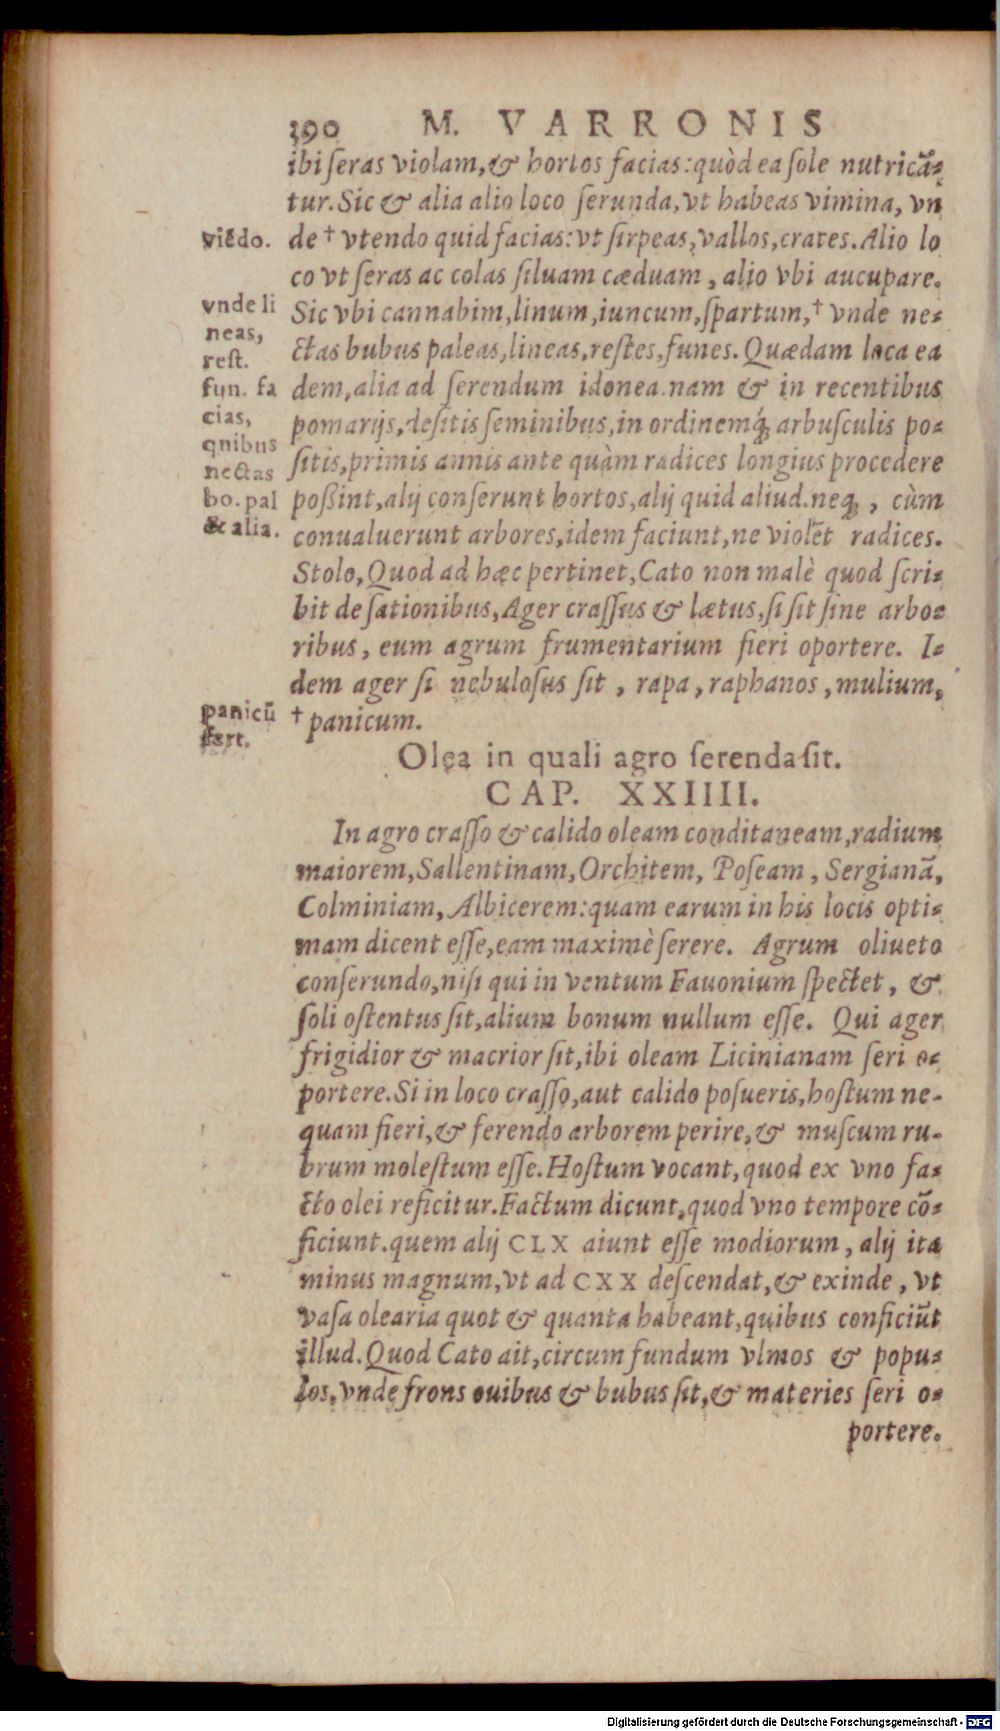 390 M. VARRONIS
ibi ſeras violam, & hortos facias: quòd ea ſole nutricã-
tur. Sic & alia alio loco ſerunda, vt habeas vimina, vn
de † vtendo quid facias: vt ſirpeas, vallos, crates. Alio lo
co vt ſeras ac colas ſiluam cæduam, alio vbi aucupare.
Sic vbi cannabim, linum, iuncum, ſpartum, † vnde ne-
ctas bubus paleas, lineas, reſtes, funes. Quædam loca ea
dem, alia ad ſerendum idonea. nam & in recentibus
pomarijs, deſitis ſeminibus, in ordinemq́; arbuſculis po-
ſitis, primis annis ante quàm radices longius procedere
poßint, alij conſerunt hortos, alij quid aliud. neq;, cùm
conualuerunt arbores, idem faciunt, ne violẽt radices.
Stolo, Quod ad hæc pertinet, Cato non malè quod ſcri-
bit de ſationibus, Ager craſſus & lætus, ſi ſit ſine arbo-
ribus, eum agrum frumentarium fieri oportere. I-
dem ager ſi nebuloſus ſit, rapa, raphanos, mulium,
† panicum.
viẽdo.
vnde li
neas,
reſt.
fun. fa
cias,
qnibus
nectas
bo. pal
& alia.
panicũ
fert.
Olea in quali agro ſerenda ſit.
CAP. XXIIII.
In agro craſſo & calido oleam conditaneam, radium
maiorem, Sallentinam, Orchitem, Poſeam, Sergianã,
Colminiam, Albicerem: quam earum in his locis opti-
mam dicent eſſe, eam maximè ſerere. Agrum oliueto
conſerundo, niſi qui in ventum Fauonium ſpectet, &
ſoli oſtentus ſit, alium bonum nullum eſſe. Qui ager
frigidior & macrior ſit, ibi oleam Licinianam ſeri o-
portere. Si in loco craſſo, aut calido poſueris, hoſtum ne-
quam fieri, & ferendo arborem perire, & muſcum ru-
brum moleſtum eſſe. Hoſtum vocant, quod ex vno fa-
cto olei reficitur. Factum dicunt, quod vno tempore cõ-
ficiunt. quem alij CLX aiunt eſſe modiorum, alij ita
minus magnum, vt ad CXX deſcendat, & exinde, vt
vaſa olearia quot & quanta habeant, quibus conficiũt
illud. Quod Cato ait, circum fundum vlmos & popu-
los, vnde frons ouibus & bubus ſit, & materies ſeri o-
portere.
Digitalisierung gefördert durch die Deutsche Forschungsgemeinschaft - DFG